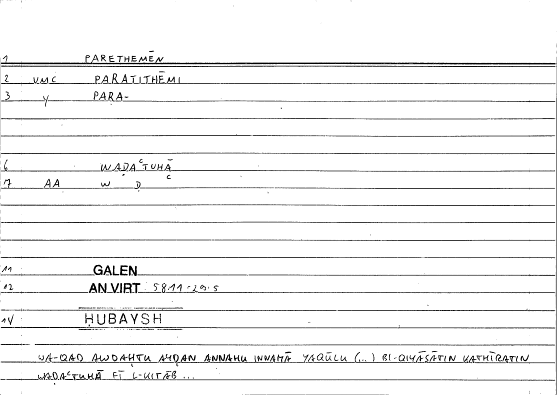 1 PARETHEMĒN
2 VMC PARATITHĒMI
3 Y PARA-
6 WAḌAʿTUHĀ
7 AA W Ḍ ʿ
11 GALEN
12 AN VIRT 5811-29.5
14 ḤUBAYSH
WA-QAD AWḌAḤTU AYḌAN ANNAHU INNAMĀ YAQŪLU (...) BI-QIYĀSĀTIN KATHĪRATIN
WAḌAʿTUHĀ FĪ L-KITĀB ...